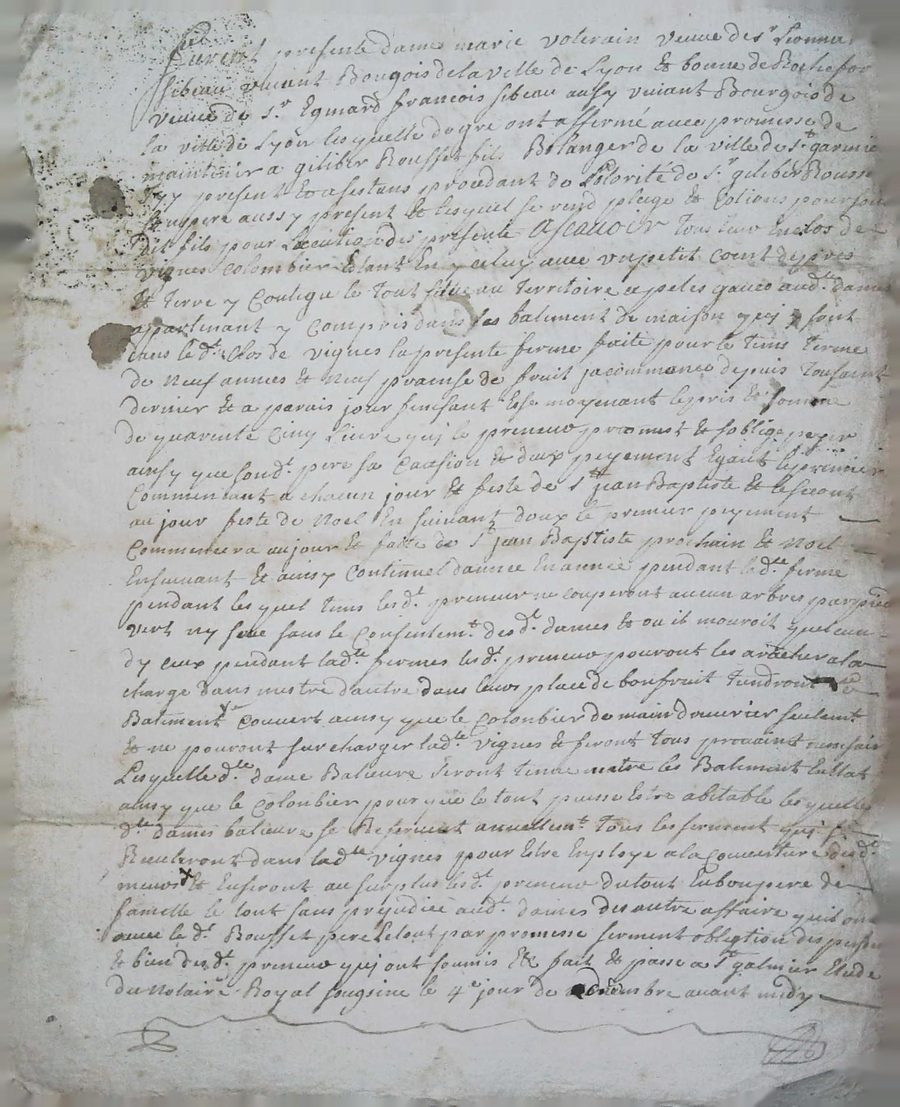 Furent presente dame marie voterain veuve de sr Lionna
sibeau vivant Bougois de la ville de Lyon Et bonne de Rochefor
veuve de sr Egmard françois sibeau aussy vivant Bourgois de
la ville de Lyon lesquelle dogre ont affermé avec promesse de
maintenir a gilibér Bousset fils Bolanger de la ville de st garmie
Icy present Et asestans procedant de Lotorité de sr gilibér Bousse
son pere aussy present Et lesquel se rend pleige Et Cotions pour son
dit fils pour Lexecution des presente Ascavoir Tous leur enclos de
vignes Colombier Estant En y celuy avec un petit coent de pres
Et Terre y Contigu le Tout situe au Territoire apeles aud. dames
appartenant y Compris dans les batiment de maison quj y sont
dans le d. Clos de vignes la presente ferme faite pour le tems Terme
de Neuf annees Et Neuf prainse de fruit ja commance depuis Tousaint
dernier Et a parais jour finissant Esse moyenant le pris Et somme
de quarente Cinq Livre quj le preneur promest Et soblige peyer
aussy que sond. pere sa Caution Et deux peyement Egaux le premier
Commentant a chacun jour Et feste de st jean Baptiste Et le second
au jour feste de Noel En suivant doux le premier peyement
Commencera au jour Et faite de st jean Baptiste prochain Et Noel
Ensuivant Et ainsy Continuel dannée En année pendant lade ferme
pendant les quel tems lesd. preneur ne couperont aucun arbres par pied
vert ny sec sans le Consentemt. desd. dames Et ou il mouroit quelcun
dy ceux pendant lad. fermes lesd. preneur pouront les aracher a la
charge dans mestre dautre dans leurs place de bon fruit Tiendront
Batiment Couvert aussy que le Colombier de main douvrier seulemt
Et ne pouront surcharger lad. vignes Et feront Tous
Lesquelle d. dame Balieure seront tenue metre les Batiment En Estat
aussy que le Colombier pour que le tout puisse Estre abitable lesquelles
d. dames balieure se Reservent annellemt. Tous les serment quj se
Receuliront dans lade vignes pour Estre Employe a la Couverture desd.
meurs Et Enseront au surplus lesd. preneur du tout En bon pere de
famille le tout sans prejudice aud. dames des autre affaire quil ont
avec le d. Bousset pere Le tout par promesse serment obligtion des persone
Et bien desd. preneur quj ont soumis Etc fait Et passe a st galmier Etude
du Notaire Royal sousigne le 4e jour de avant midy